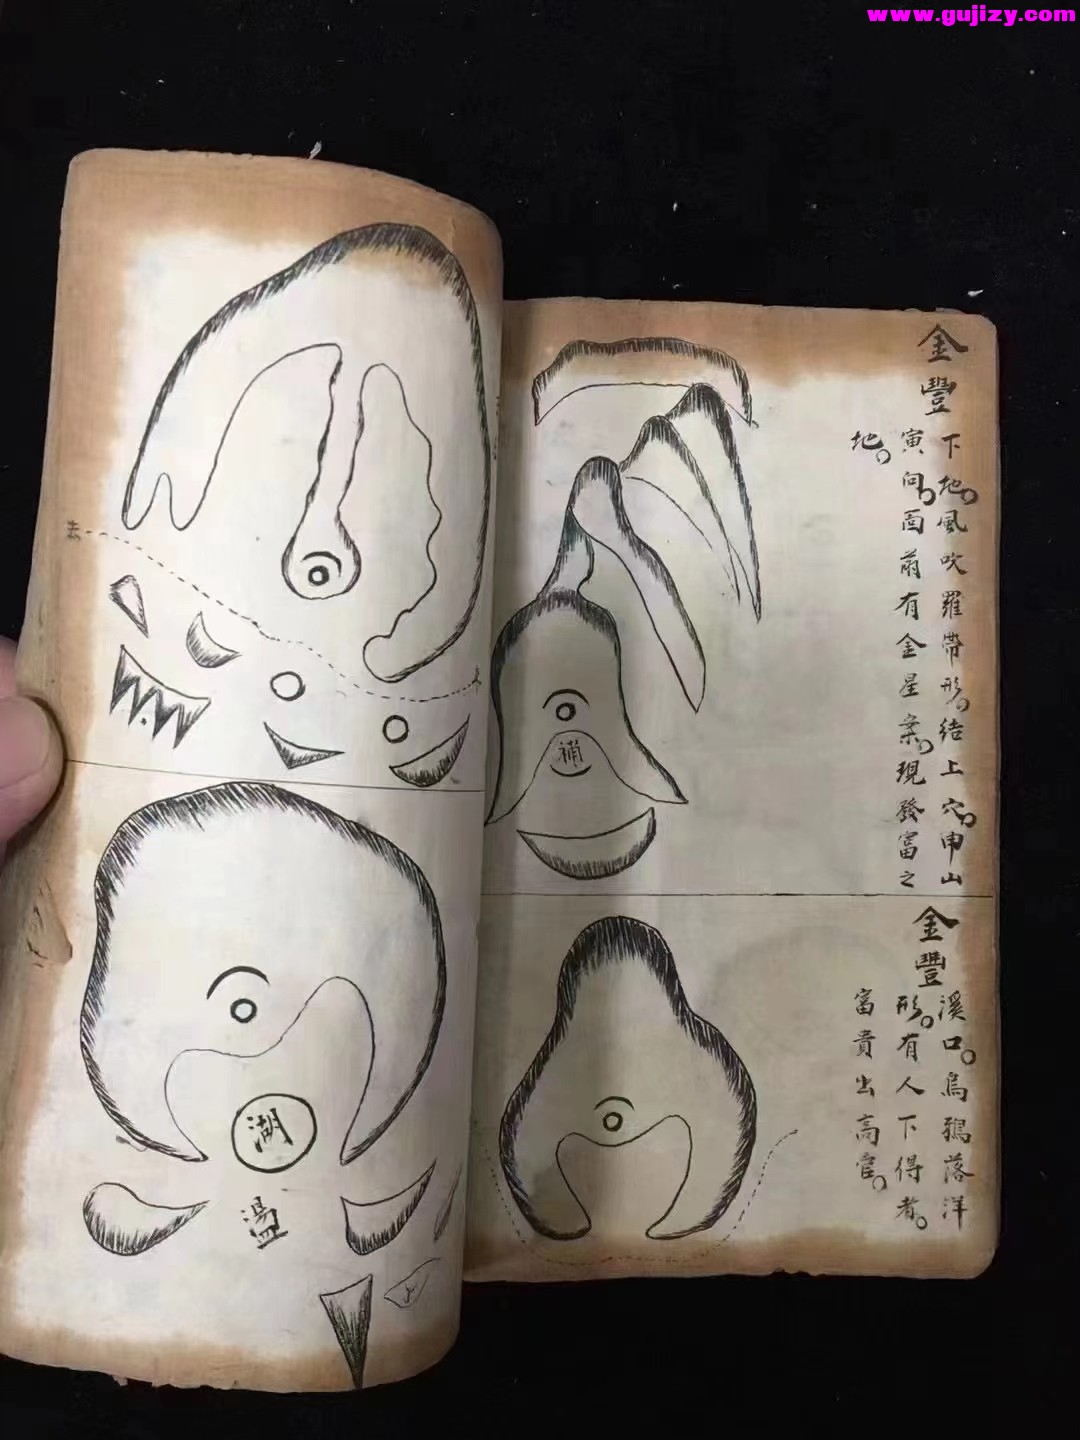 www.gujizy.com
金豐
下地。風吹羅帶形。結上穴。申山
寅向。面前有金星案。現發富之
地。
補
金豐
溪口。烏鴉落洋
形。有人下得者。
富貴出高官。
去
湖
盪